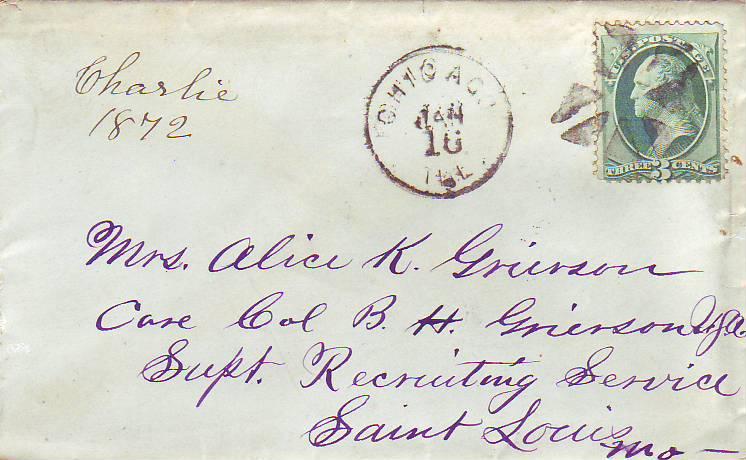 Charlie
1872
CHICAGO
JAN
16
ILL
U.S. POSTAGE
THREE 3 CENTS
Mrs. Alice K. Grierson
Care Col B. H. Grierson U.S.A.
Supt. Recruiting Service
Saint Louis
Mo